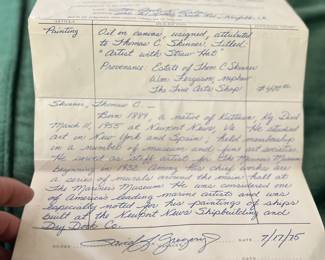 Painting Oil on canvas, unsigned, attributed
to Thomas C. Skinner. Titled
"Artist with Straw Hat"
Provenance: Estate of Thom C Skinner
Wm. Ferguson, nephew
The Fine Arts Shop
Skinner, Thomas C. —
Born 1888, a native of Kuttawa, Ky. Died
March 11, 1955 at Newport News, Va. He studied
art in New York and Spain, held membership
in a number of museum and fine art societies.
He served as staff artist for the Mariners Museum
beginning in 1932. Among his chief works are
a series of murals around the main hall at
The Mariners Museum. He was considered one
of America's leading marine artists and was
especially noted for his paintings of ships
built at the Newport News Shipbuilding and
Dry Dock Co.
SIGNED David L. Gregory DATE 7/17/75